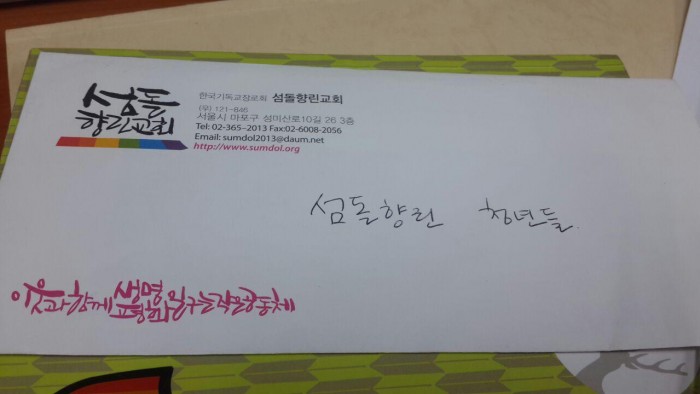 섬돌
향린교회
한국기독교장로회 섬돌향린교회
(우) 121-846
서울시 마포구 성미산로10길 26 3층
Tel: 02-365-2013 Fax:02-6008-2056
Email: sumdol2013@daum.net
http://www.sumdol.org
섬돌향린 청년들.
이웃과 함께 생명 평화 일구는 작은 공동체